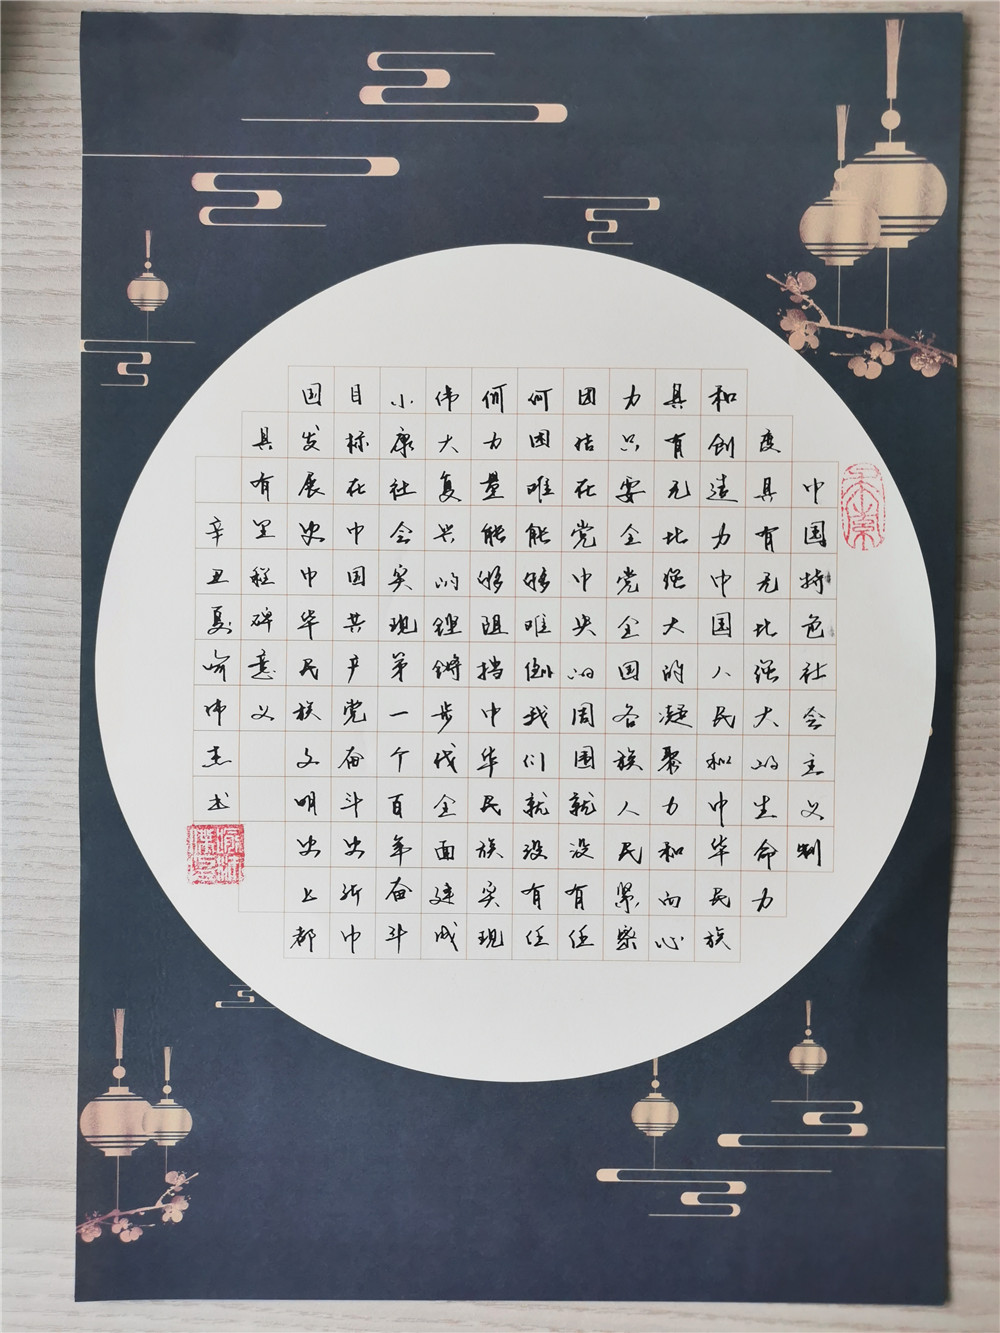 中国特色社会主义制
度具有无比强大的生命力
和创造力中国人民和中华民族
具有无比强大的凝聚力和向心
力只要全党全国各族人民紧密
团结在党中央的周围就没有任
何困难能够难倒我们就没有任
何力量能够阻挡中华民族实现
伟大复兴的铿锵步伐全面建成
小康社会实现第一个百年奋斗
目标在中国共产党奋斗史新中
国发展史中华民族文明史上都
具有里程碑意义
辛丑夏喻伟杰书